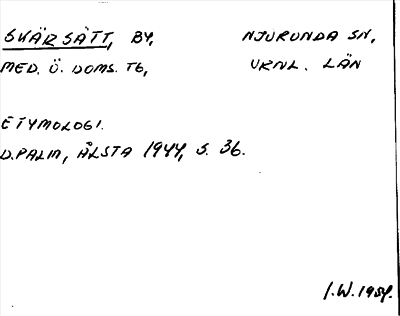 SKÄRSÄTT, BY, NJURUNDA SN,
MED. Ö. DOMS. TG, VRNL. LÄN
ETYMOLOGI.
D. PALM, ÅLSTA 1944, S. 36.
I.W. 1954.